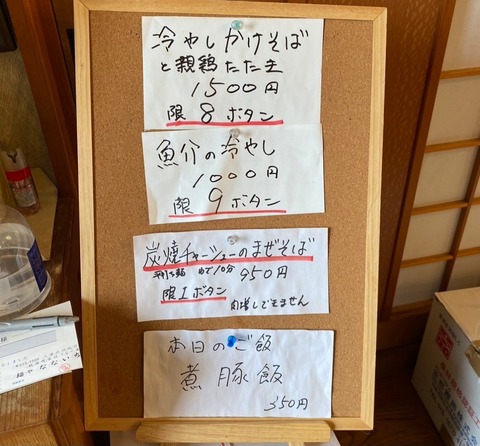 冷やしかけそば
と親鶏たたき
1500円
限8ボタン
魚介の冷やし
1000円
限9ボタン
炭焼チャーシューのまぜそば
平打ち麺 ゆで10分 950円
限1ボタン 肉増しできません
本日のご飯
煮豚飯
350円